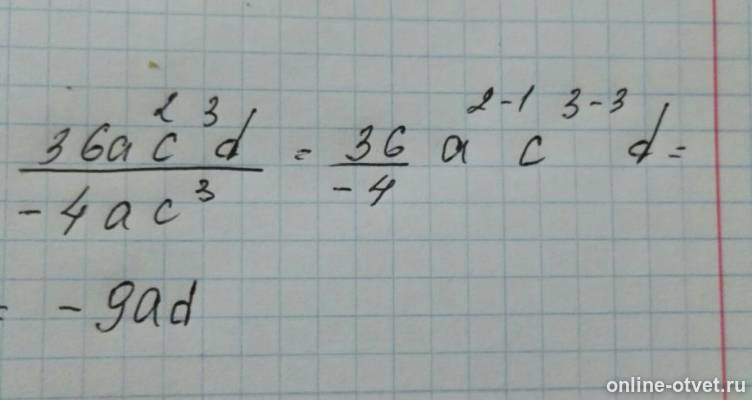 36a²c³d / -4ac³ = 36/-4 a²⁻¹ c³⁻³ d =
= -9ad
online-otvet.ru